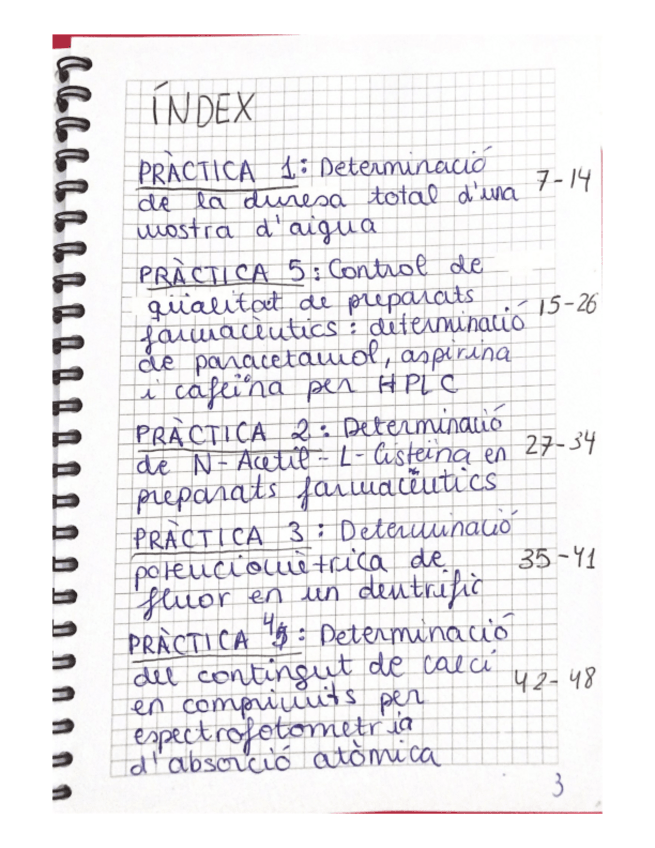 ÍNDEX
PRÀCTICA 1: Determinació
de la duresa total d'una 7-14
mostra d'aigua
PRÀCTICA 5: Control de
qüalitat de preparats
farmacèutics: determinació 15-26
de paracetamol, aspirina
i cafeïna per HPLC
PRÀCTICA 2: Determinació
de N-Acetil-L-Cisteïna en 27-34
preparats farmacèutics
PRÀCTICA 3: Determinació
potenciomètrica de 35-41
fluor en un dentrífic
PRÀCTICA 4: Determinació
del contingut de calci 42-48
en comprimits per
espectrofotometria
d'absorció atòmica
3